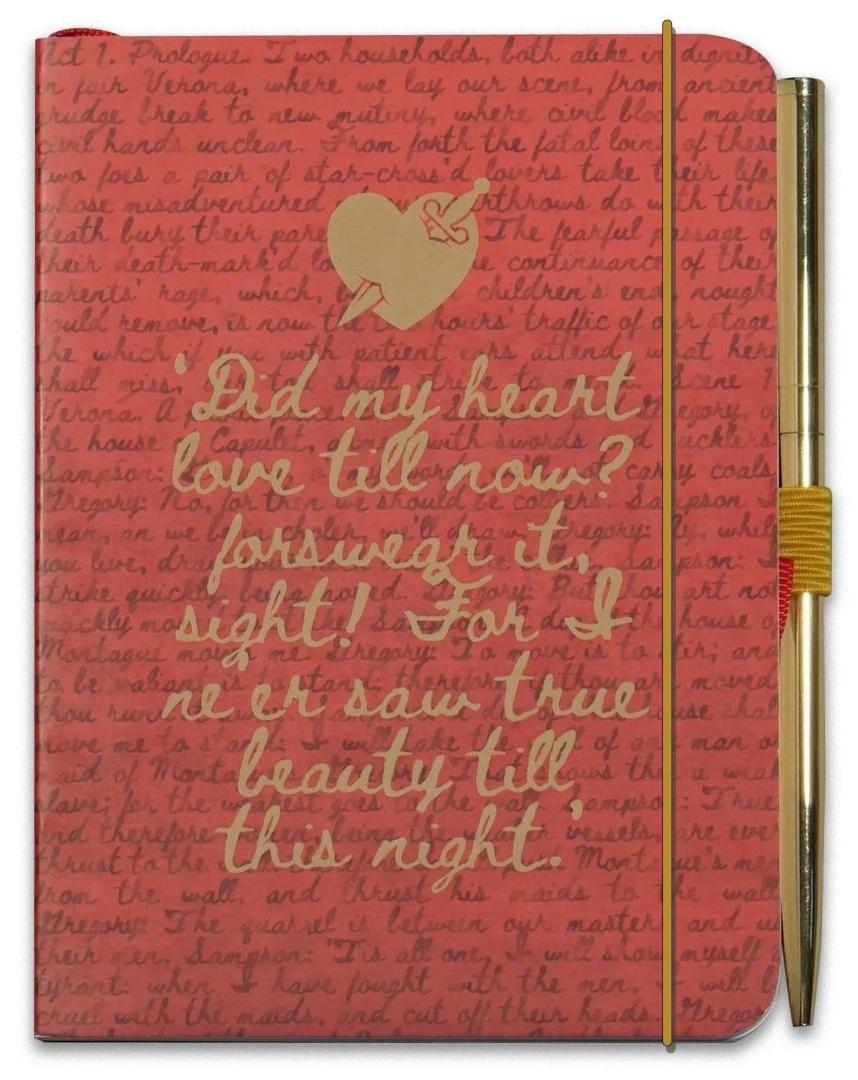 Act 1. Prologue. Two households, both alike in dignity
in fair Verona, where we lay our scene, from ancient
grudge break to new mutiny, where civil blood makes
civil hands unclean. From forth the fatal loins of these
two foes a pair of star-cross'd lovers take their life
whose misadventured rthrows do with their
death bury their pare The fearful passage of
their death-mark'd lo e continuance of their
parents' rage, which, children's end, nought
could remove, is now the hours' traffic of our stage
the which if you with patient ears attend, what here
shall miss, shall strive to Scene 1
Verona. A Gregory, of
the house Capulet, with swords
Sampson: carry coals
Gregory: No, for then we should be Sampson I
mean, an we be in choler, we'll draw. Gregory: Ay, while
you live, Sampson: I
strike quickly, being moved. Gregory: But thou art not
quickly the house of
Montague moves me. Gregory: To move is to stir; and
to be valiant is to stand: therefore, thou moved
thou shall
move me to stand: I will take the of any man or
maid of That shows thee a weak
slave; for the weakest goes to the wall. Sampson: True
and therefore women, being the vessels, are ever
thrust to the Montague's men
from the wall, and thrust his maids to the wall
Gregory: The quarrel is between our masters and us
their men. Sampson: 'Tis all one, I will show myself a
tyrant: when I have fought with the men, I will be
cruel with the maids, and cut off their heads. Gregory
'Did my heart
love till now?
forswear it,
sight! For I
ne'er saw true
beauty till
this night.'